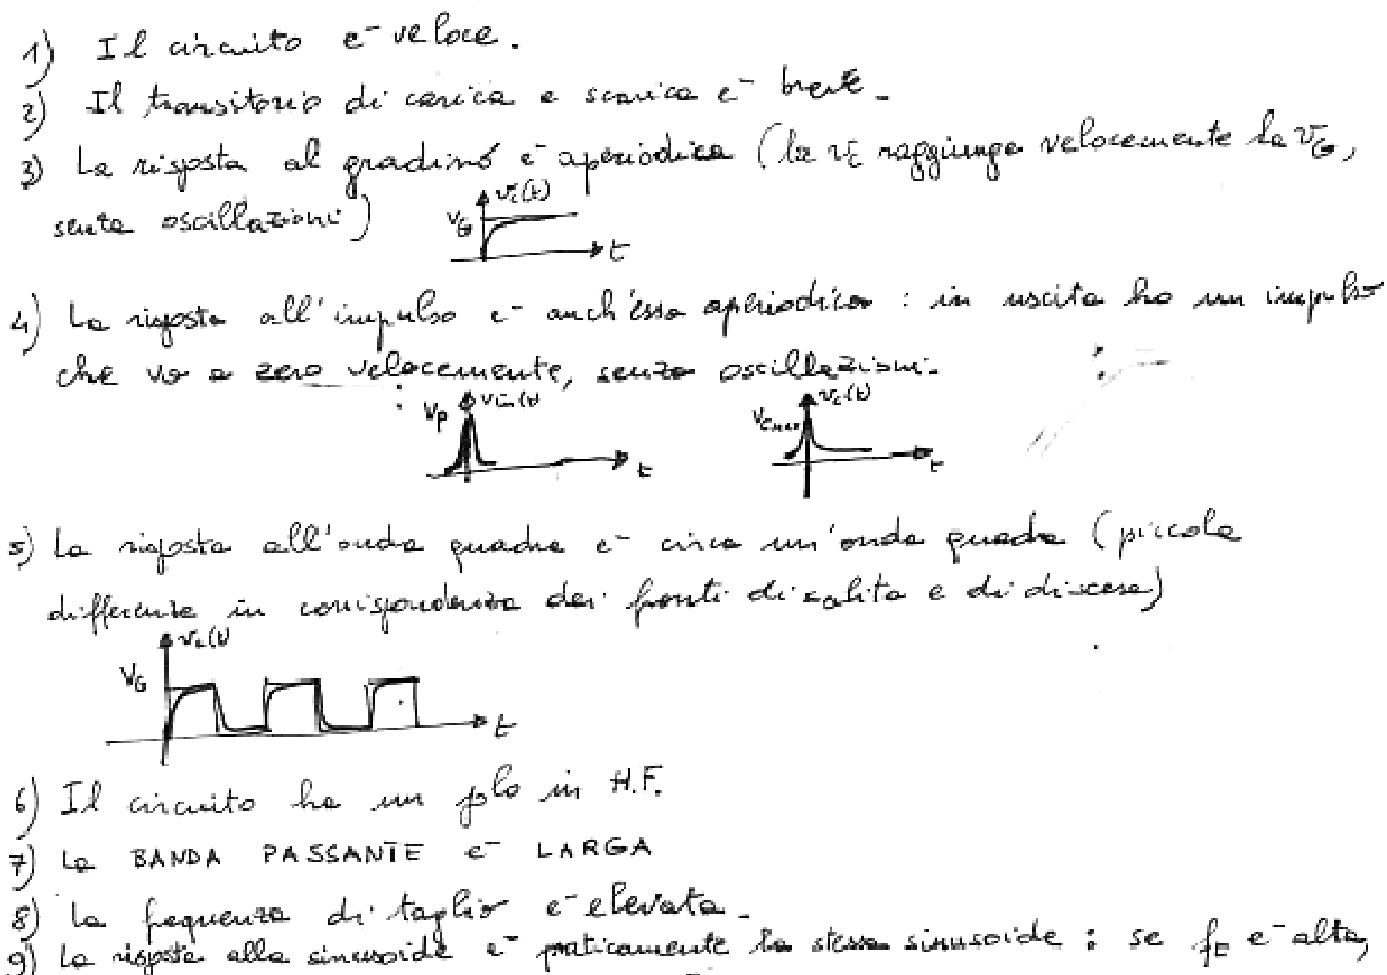 1) Il circuito e- veloce.
2) Il transitorio di carica e scarica e- breve.
3) La risposta al gradino e- aperiodica (la vc raggiunge velocemente la VG,
senza oscillazioni)
vc(t)
VG
t
4) La risposta all'impulso e- anch'essa aperiodica : in uscita ho un impulso
che va a zero velocemente, senza oscillazioni.
Vp vin(t) t
Vcmax vc(t) t
5) La risposta all'onda quadra e- circa un'onda quadra (piccole
differenze in corrispondenza dei fronti di salita e di discesa)
vc(t)
VG
t
6) Il circuito ha un polo in H.F.
7) La BANDA PASSANTE e- LARGA
8) La frequenza di taglio e- elevata.
9) La risposta alla sinusoide e- praticamente la stessa sinusoide : se ft e- alta,